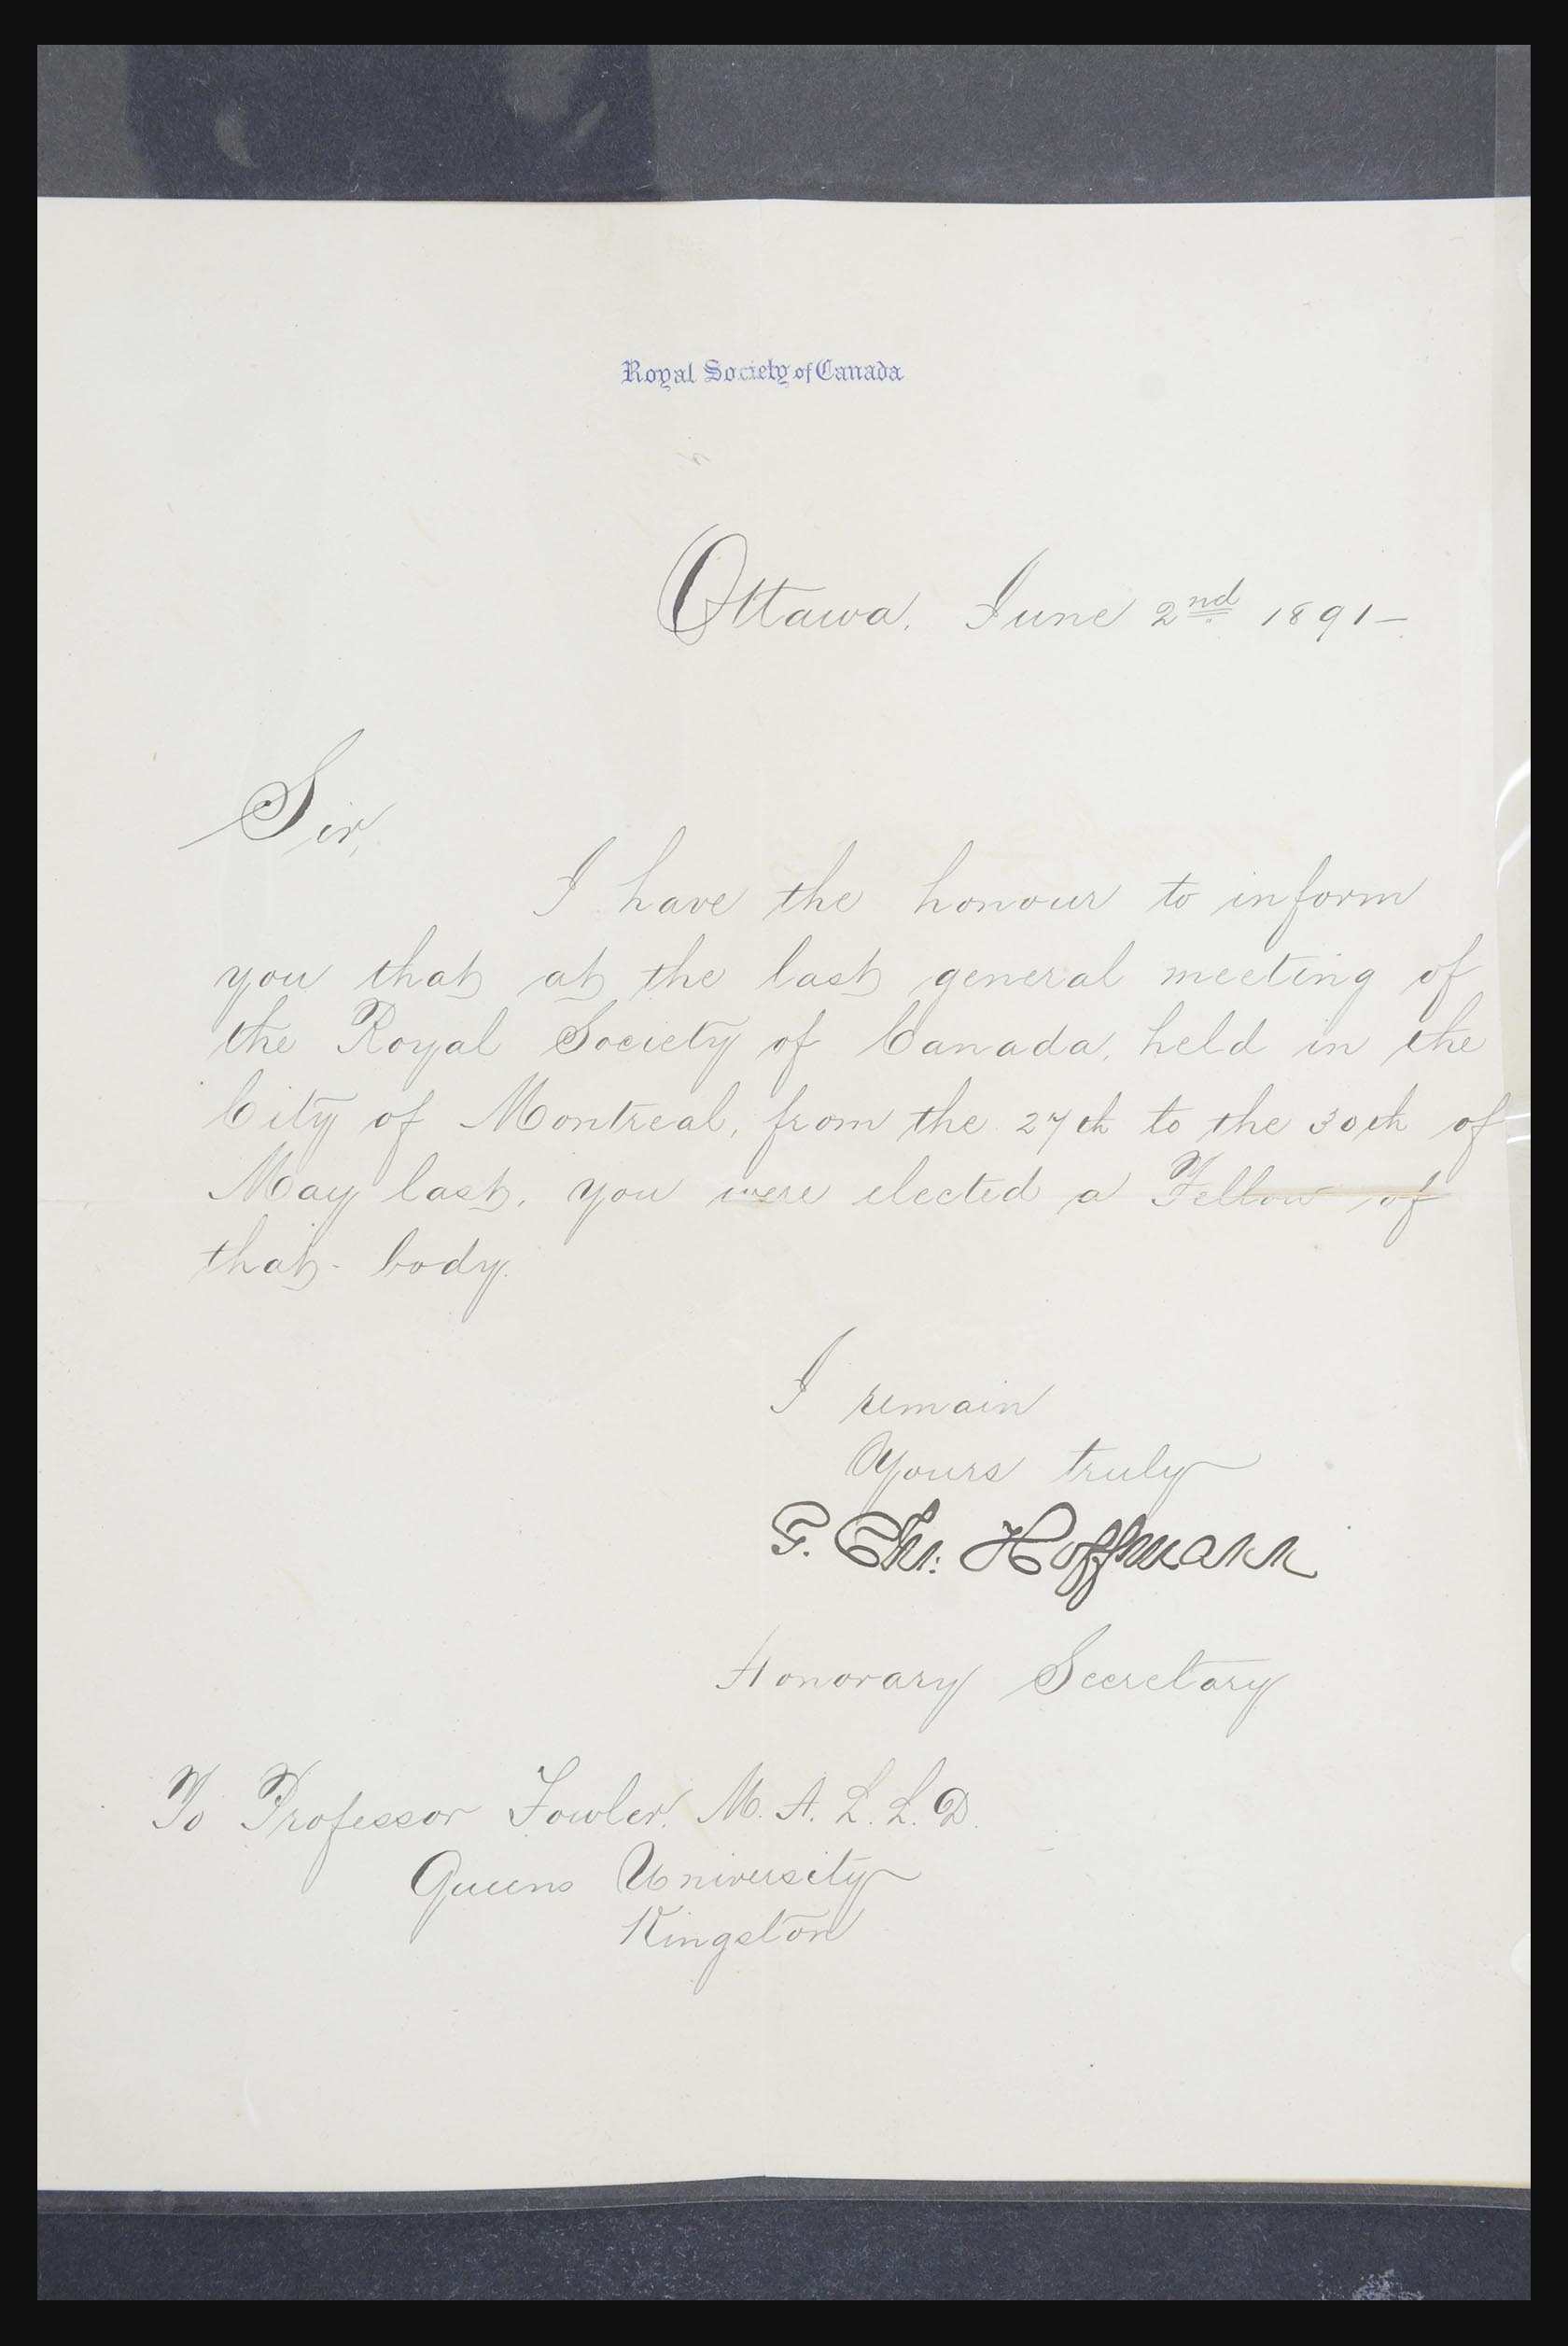 Royal Society of Canada
Ottawa, June 2nd 1891-
Sir,
I have the honour to inform
you that at the last general meeting of
the Royal Society of Canada, held in the
City of Montreal, from the 27th to the 30th of
May last, you were elected a Fellow of
that body.
I remain
Yours truly
G. Chr. Hoffmann
Honorary Secretary
To Professor Fowler, M. A. L. L. D.
Queens University
Kingston